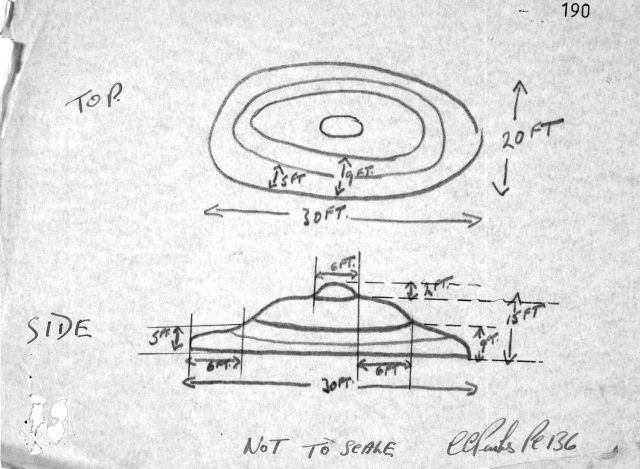 190
TOP.
20FT
5FT
9FT.
30FT.
6FT.
2FT.
15FT
SIDE
5FT.
9FT
6FT.
6FT.
30FT.
NOT TO SCALE
PC 136